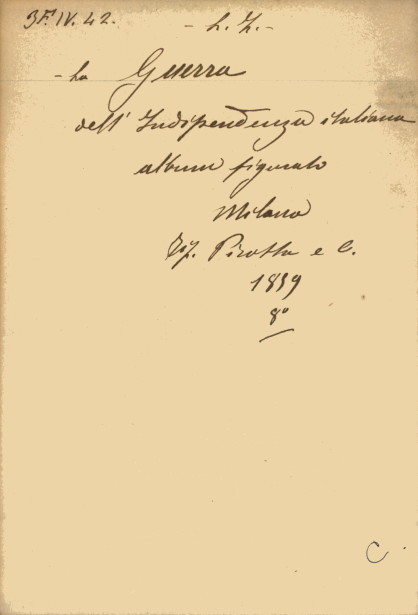 3F. IV. 42.
- L. Z. -
- La Guerra
dell' Indipendenza italiana
album figurato
Milano
Tip. Pirotta e C.
1859
8°
C